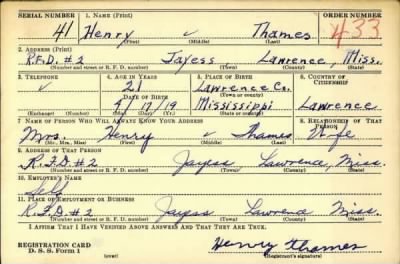 SERIAL NUMBER 1. NAME (Print) ORDER NUMBER
41 Henry ✓ Thames 433
(First) (Middle) (Last)
2. ADDRESS (Print)
R.F.D. #2 Jayess Lawrence, Miss.
(Number and street or R. F. D. number) (Town) (County) (State)
3. TELEPHONE 4. AGE IN YEARS 5. PLACE OF BIRTH 6. COUNTRY OF CITIZENSHIP
✓ 21 Lawrence Co.
DATE OF BIRTH (Town or county)
4/17/19 Mississippi Lawrence
(Exchange) (Number) (Mo.) (Day) (Yr.) (State or country)
7. NAME OF PERSON WHO WILL ALWAYS KNOW YOUR ADDRESS 8. RELATIONSHIP OF THAT PERSON
Mrs. Henry ✓ Thames Wife
(Mr., Mrs., Miss) (First) (Middle) (Last)
9. ADDRESS OF THAT PERSON
R.F.D. #2 Jayess Lawrence, Miss.
(Number and street or R. F. D. number) (Town) (County) (State)
10. EMPLOYER'S NAME
Self
11. PLACE OF EMPLOYMENT OR BUSINESS
R.F.D. #2 Jayess Lawrence Miss.
(Number and street or R. F. D. number) (Town) (County) (State)
I AFFIRM THAT I HAVE VERIFIED ABOVE ANSWERS AND THAT THEY ARE TRUE.
REGISTRATION CARD
D. S. S. Form 1 (over) Henry thames
(Registrant's signature)